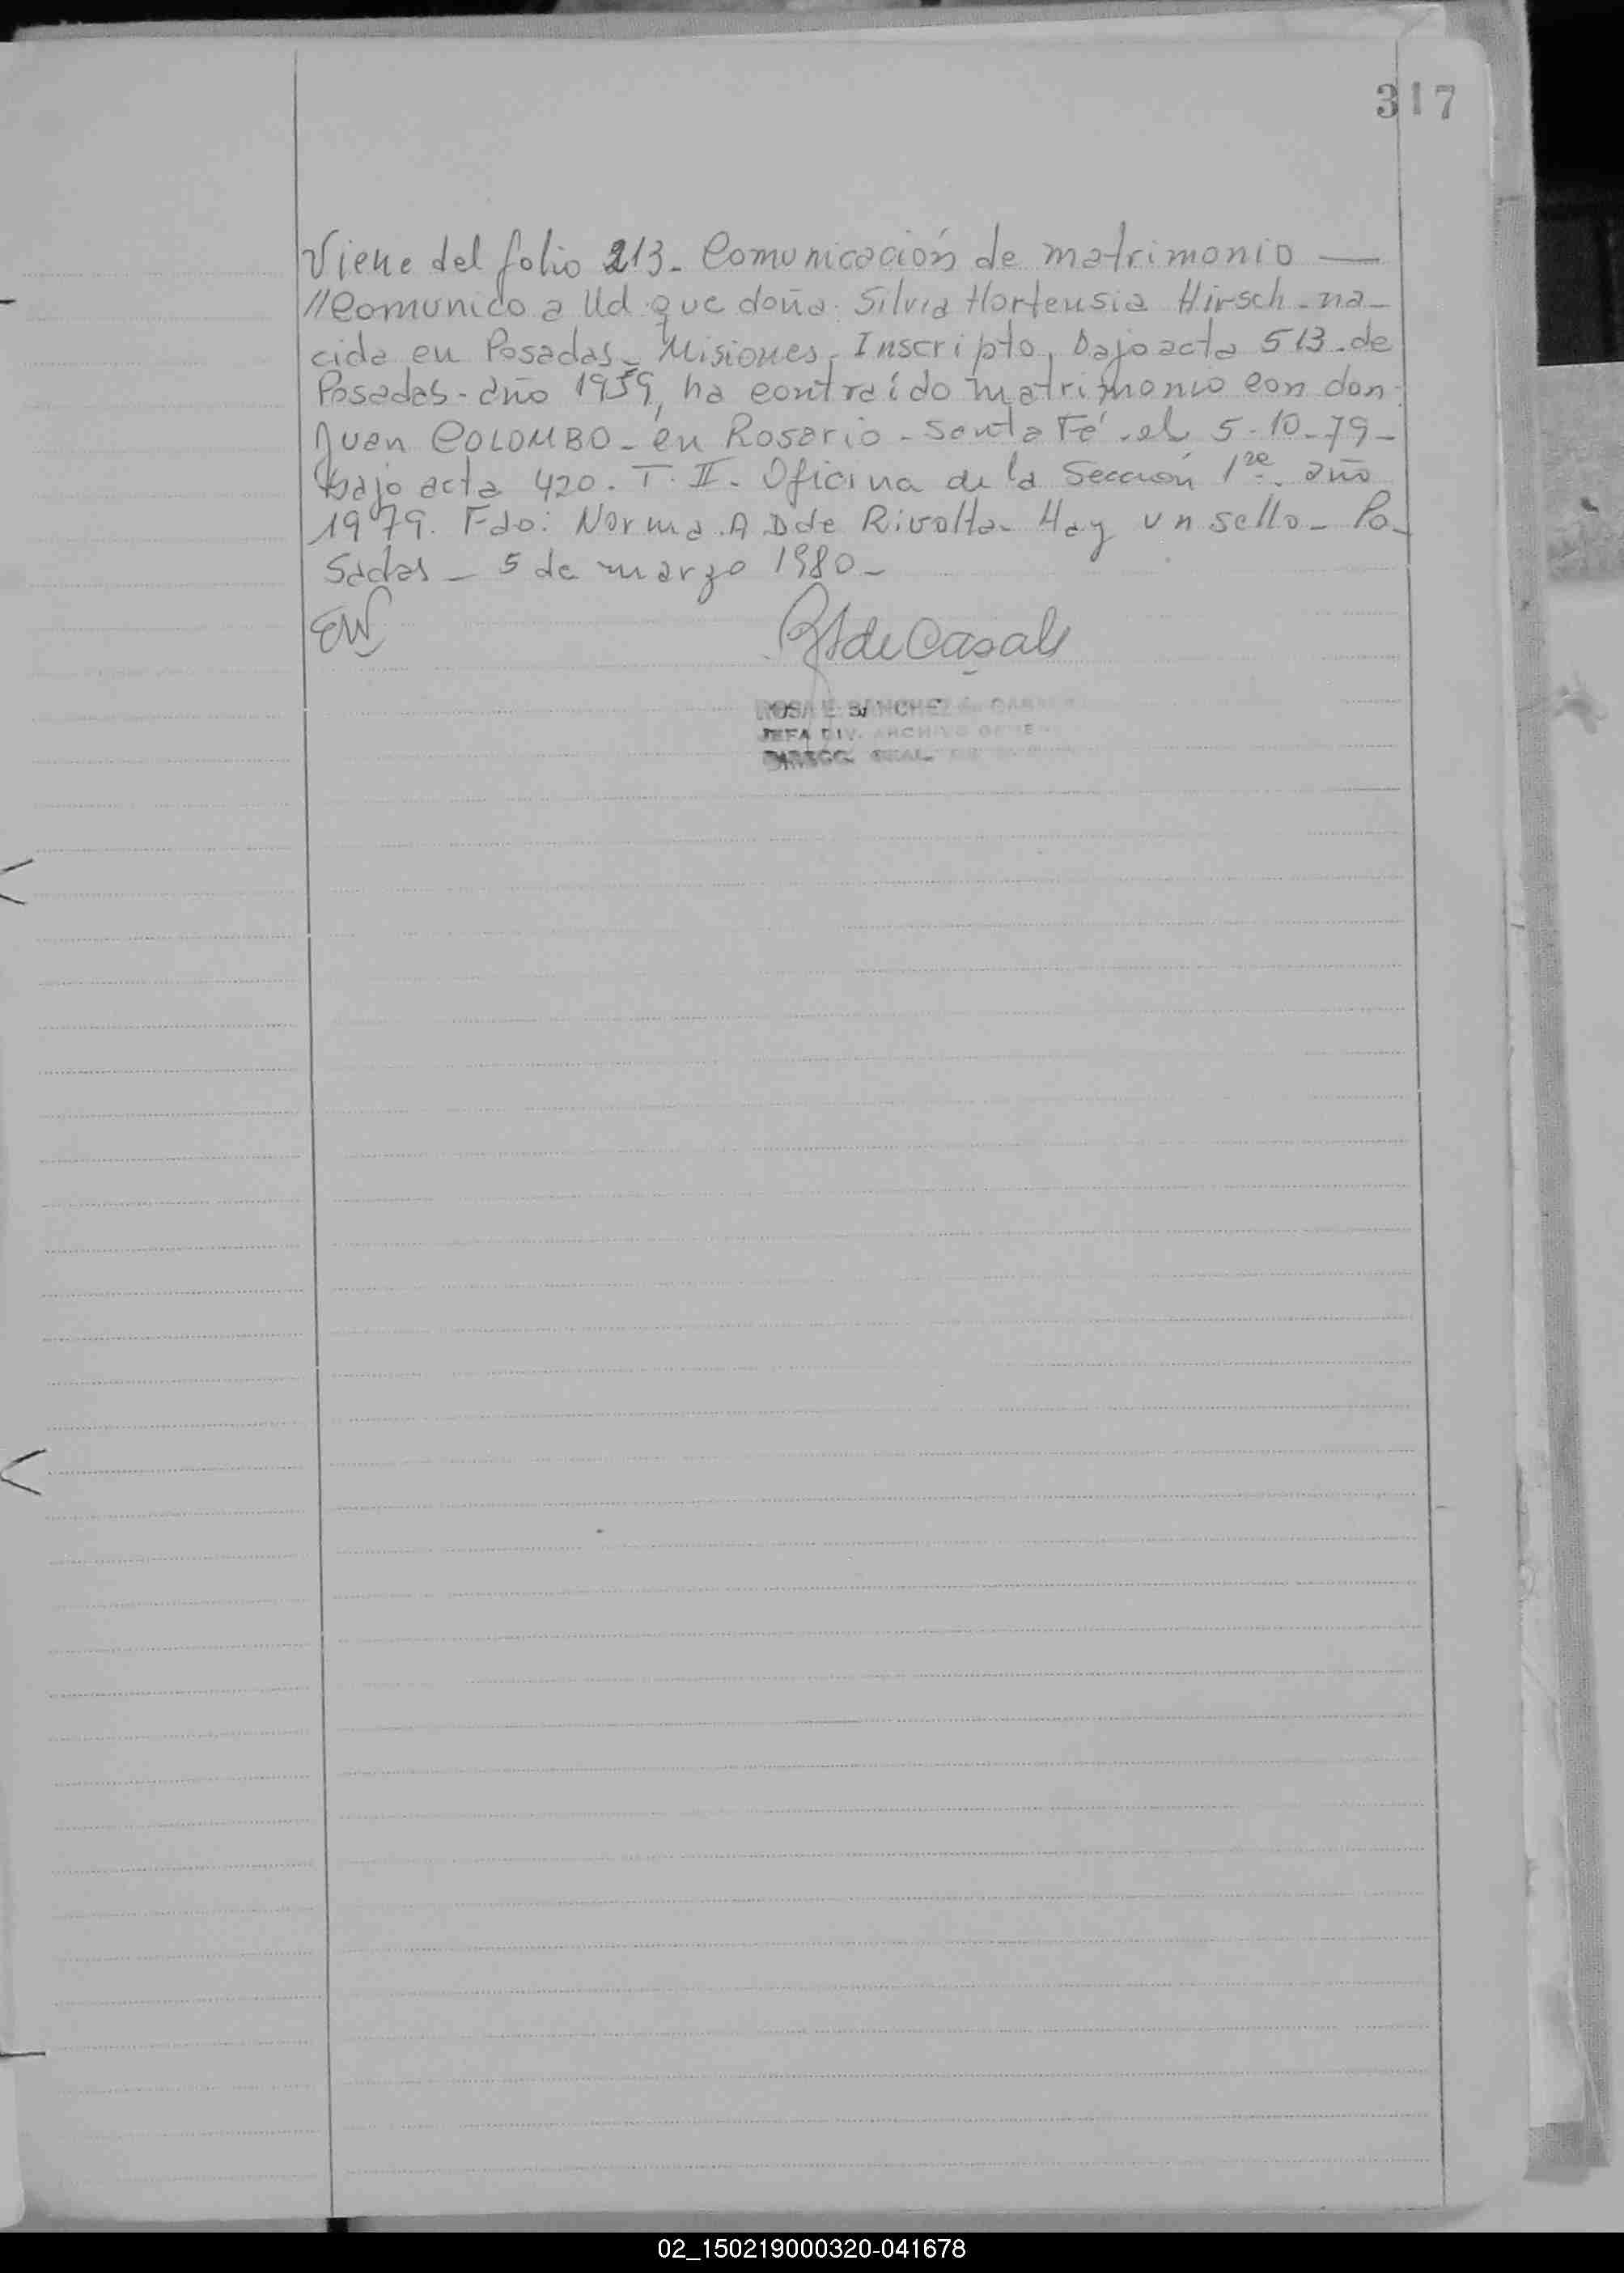 317
Viene del folio 213_ Comunicación de matrimonio —
//Comunico a Ud que doña Silvia Hortensia Hirsch_na_
cida en Posadas_ Misiones, Inscripto, bajo acta 513.de
Posadas-año 1959, ha contraído matrimonio con don
Juan COLOMBO_ en Rosario_Santa Fé.el 5-10-79_
bajo acta 420. T. II. Oficina de la Sección 1ra. año
1979. Fdo: Norma.A D de Rivolta_ Hay un sello_ Po_
sadas_ 5 de marzo 1980_
EW
de Casals
ROSA E. SANCHEZ
JEFA DIV. ARCHIVO
DIRECC. GRAL.
02_150219000320-041678